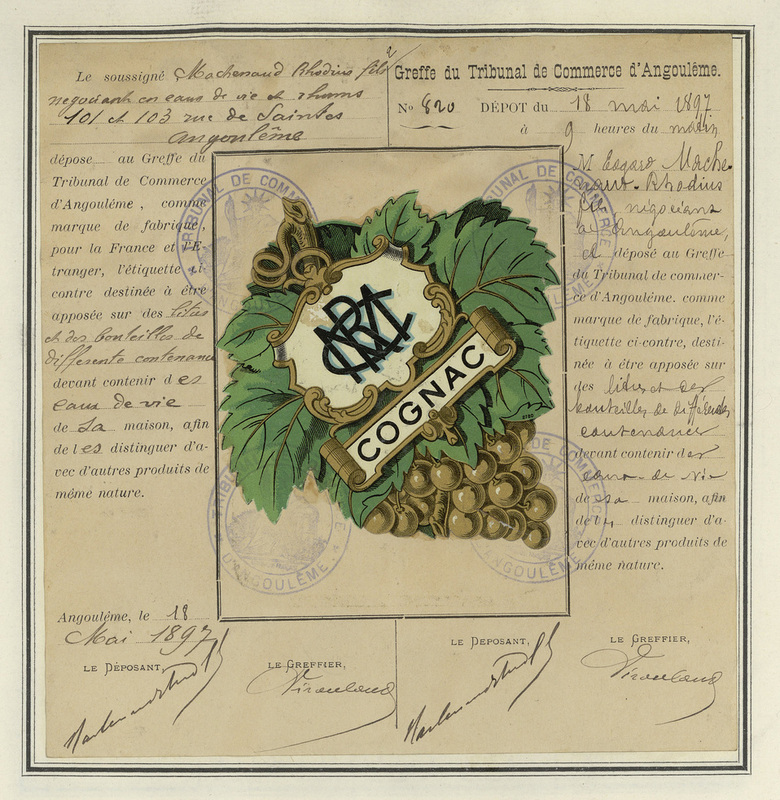 Le soussigné Machenaud Rhodius fils
negociant en eaux de vie et rhums
101 et 103 rue de Saintes
Angoulême
dépose au Greffe du
Tribunal de Commerce
d'Angoulême, comme
marque de fabrique,
pour la France et l'É-
tranger, l'étiquette ci-
contre destinée à être
apposée sur des litres
et des bouteilles de
differente contenance
devant contenir des
eaux de vie
de sa maison, afin
de les distinguer d'a-
vec d'autres produits de
même nature.
Angoulême, le 18
Mai 1897
LE DÉPOSANT,
LE GREFFIER,
Greffe du Tribunal de Commerce d'Angoulême.
No 820 DÉPOT du 18 mai 1897
à 9 heures du matin
M. Edgard Mache-
naud-Rhodius
fils négociant
à Angoulême,
a déposé au Greffe
du Tribunal de commer-
ce d'Angoulême, comme
marque de fabrique, l'é-
tiquette ci-contre, desti-
née à être apposée sur
des litres et des
bouteilles de différentes
contenances
devant contenir des
eaux-de-vie
de sa maison, afin
de les distinguer d'a-
vec d'autres produits de
même nature.
LE DEPOSANT,
LE GREFFIER,
COGNAC
TRIBUNAL DE COMMERCE
D'ANGOULÊME